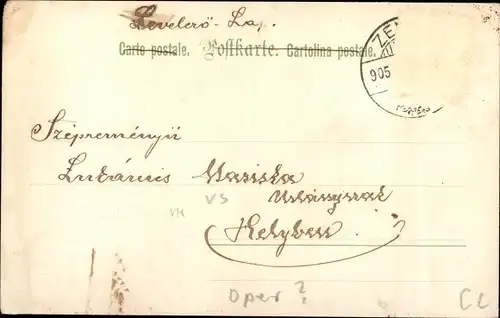 Levelező-Lap.
Carte postale. Postkarte. Cartolina postale.
ZE
905
Szépreményű
Lukáncis Mariska
VS
Urleánynak
Helyben.
Oper ?
CL